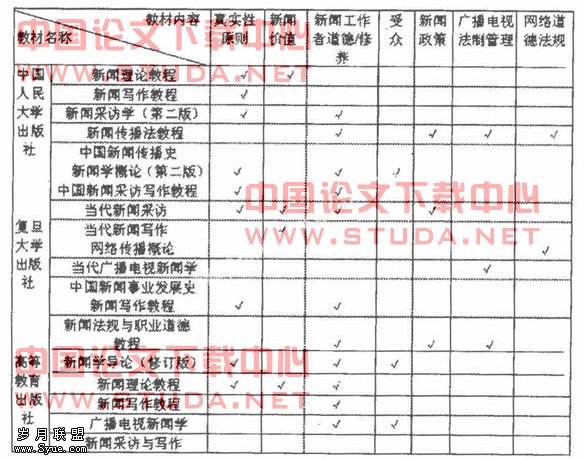 教材内容 真实性 新闻 新闻工作 受 新闻 广播电视 网络道
教材名称 原则 价值 者道德/修 众 政策 法制管理 德法规
养
中国论文下载中心
WWW.STUDA.NET
中国 新闻理论教程 ✓ ✓
人民 新闻写作教程 ✓
大学 新闻采访学（第二版） ✓ ✓
出版 新闻传播法教程 ✓ ✓ ✓ ✓
社 中国新闻传播史
新闻学概论（第二版） ✓ ✓ ✓
中国新闻采访写作教程 ✓ ✓
中国论文下载中心
当代新闻采访 ✓ ✓ ✓ ✓
WWW.STUDA.NET
复旦 当代新闻写作 ✓
大学 网络传播概论 ✓
出版 当代广播电视新闻学 ✓
社 中国新闻事业发展史
新闻写作教程 ✓ ✓
新闻法规与职业道德
教程 ✓ ✓ ✓
中国论文下载中心
高等 新闻学导论（修订版） ✓ ✓ ✓
教育 新闻理论教程 ✓ ✓ ✓
WWW.STUDA.NET
出版 新闻写作教程 ✓
社 广播电视新闻学 ✓ ✓
新闻采访与写作
岁月联盟
www.Syue.com